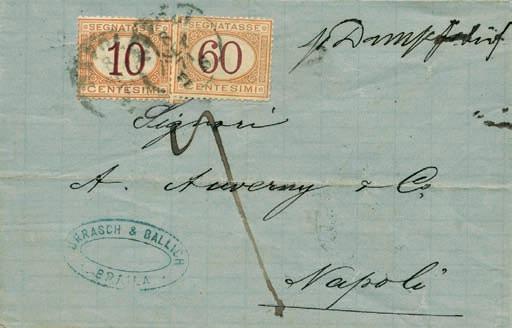 SEGNATASSE SEGNATASSE
10 60
CENTESIMI CENTESIMI
p. Dampfschiff
Signori
A. Auverny & Co.
Napoli
& BALLICH
BRAILA